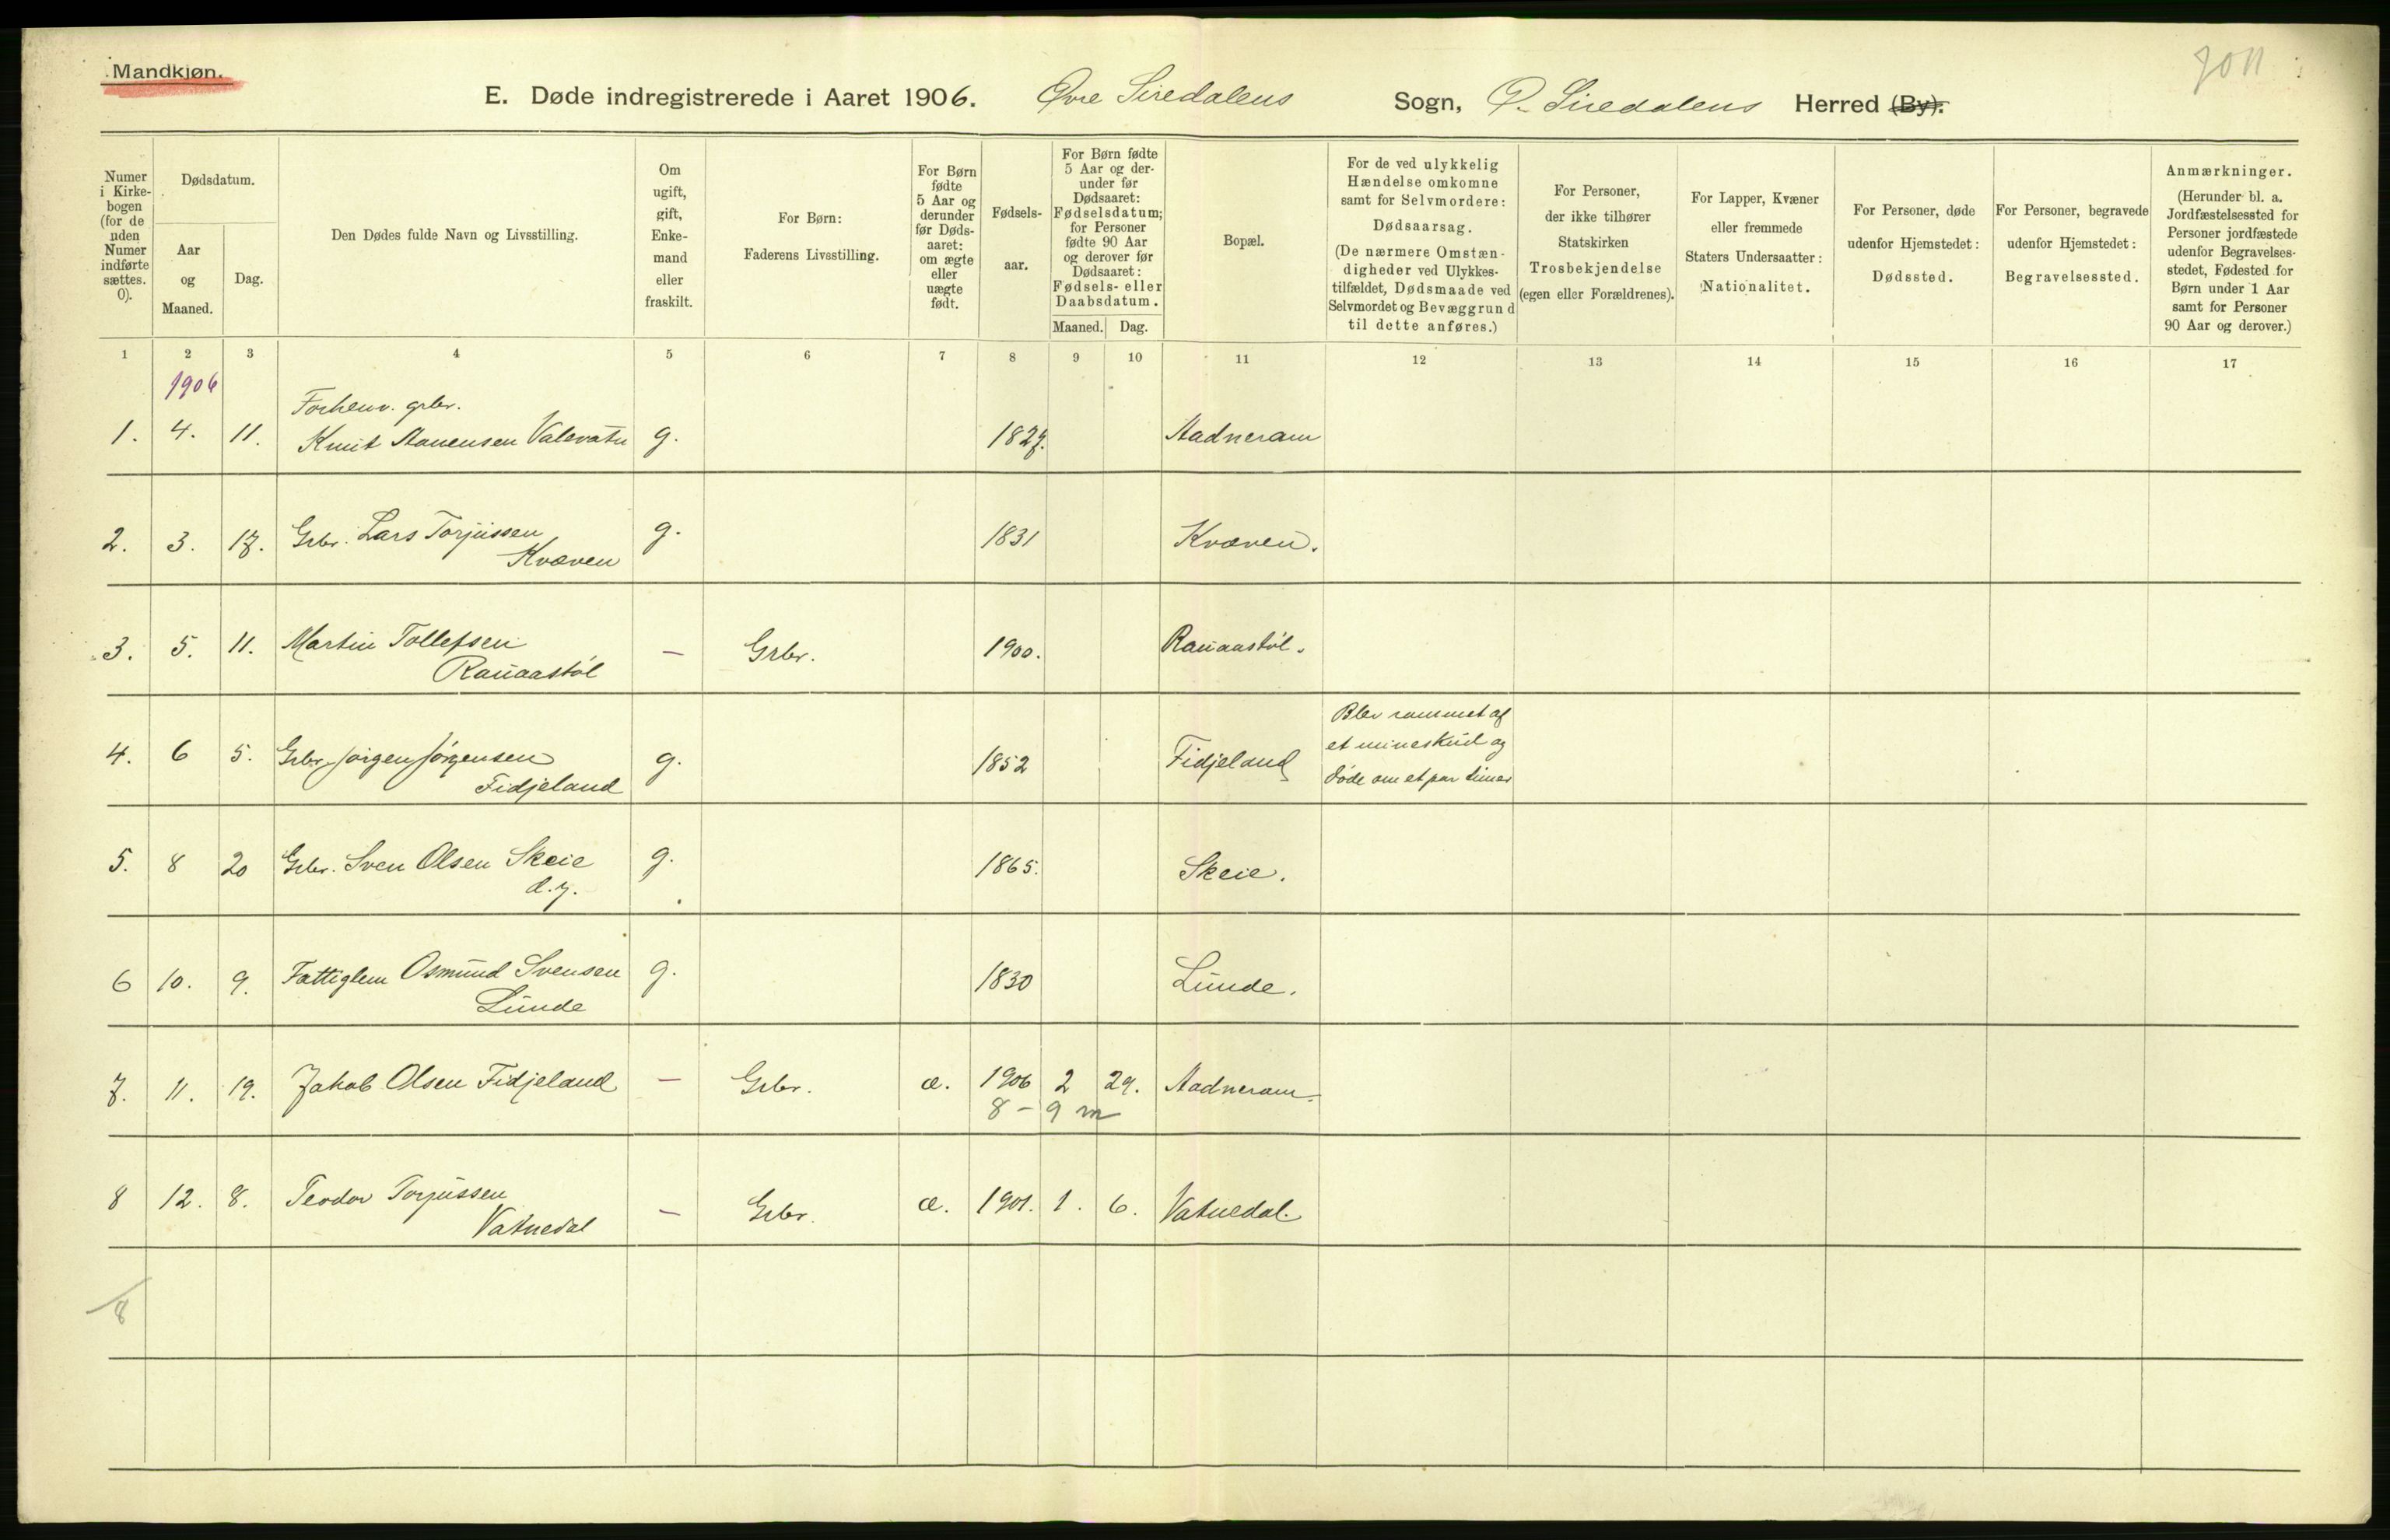 Mandkjøn.
7011
E. Døde indregistrerede i Aaret 1906. Øvre Siredalens Sogn, Ø. Siredalens Herred (By).
Numer i Kirke-bogen (for de uden Numer indførte sættes. 0).
Dødsdatum.
Aar og Maaned.
Dag.
Den Dødes fulde Navn og Livsstilling.
Om ugift, gift, Enke-mand eller fraskilt.
For Børn: Faderens Livsstilling.
For Børn fødte 5 Aar og derunder før Døds-aaret: om ægte eller uægte født.
Fødsels-aar.
For Børn fødte 5 Aar og der-under før Dødsaaret: Fødselsdatum; for Personer fødte 90 Aar og derover før Dødsaaret: Fødsels- eller Daabsdatum.
Maaned. Dag.
Bopæl.
For de ved ulykkelig Hændelse omkomne samt for Selvmordere: Dødsaarsag. (De nærmere Omstæn-digheder ved Ulykkes-tilfældet, Dødsmaade ved Selvmordet og Bevæggrund til dette anføres.)
For Personer, der ikke tilhører Statskirken Trosbekjendelse (egen eller Forældrenes).
For Lapper, Kvæner eller fremmede Staters Undersaatter: Nationalitet.
For Personer, døde udenfor Hjemstedet: Dødssted.
For Personer, begravede udenfor Hjemstedet: Begravelsessted.
Anmærkninger. (Herunder bl. a. Jordfæstelsessted for Personer jordfæstede udenfor Begravelses-stedet, Fødested for Børn under 1 Aar samt for Personer 90 Aar og derover.)
1 2 3 4 5 6 7 8 9 10 11 12 13 14 15 16 17
1906
Forhenv. grbr.
1. 4. 11. Knut Aanensen Valevatn g. 1827. Aadneram
2. 3. 17. Grbr. Lars Torjussen g. 1831 Kvæven.
Kvæven
3. 5. 11. Martin Tollefsen — Grbr. 1900. Rauaastøl.
Rauaastøl
4. 6 5. Grbr. Jørgen Jørgensen g. 1852 Fidjeland Blev rammet af
Fidjeland et mineskud og
døde om et par timer
5. 8 20 Grbr. Sven Olsen Skeie g. 1865. Skeie.
d.y.
6 10. 9. Fattiglem Osmund Svensen g. 1830 Lunde.
Lunde
7. 11. 19. Jakob Olsen Fidjeland — Grbr. æ. 1906 2 29. Aadneram.
8 – 9 m
8 12. 8. Teodor Torjussen — Grbr. æ. 1901. 1. 6. Vatnedal.
Vatnedal
8